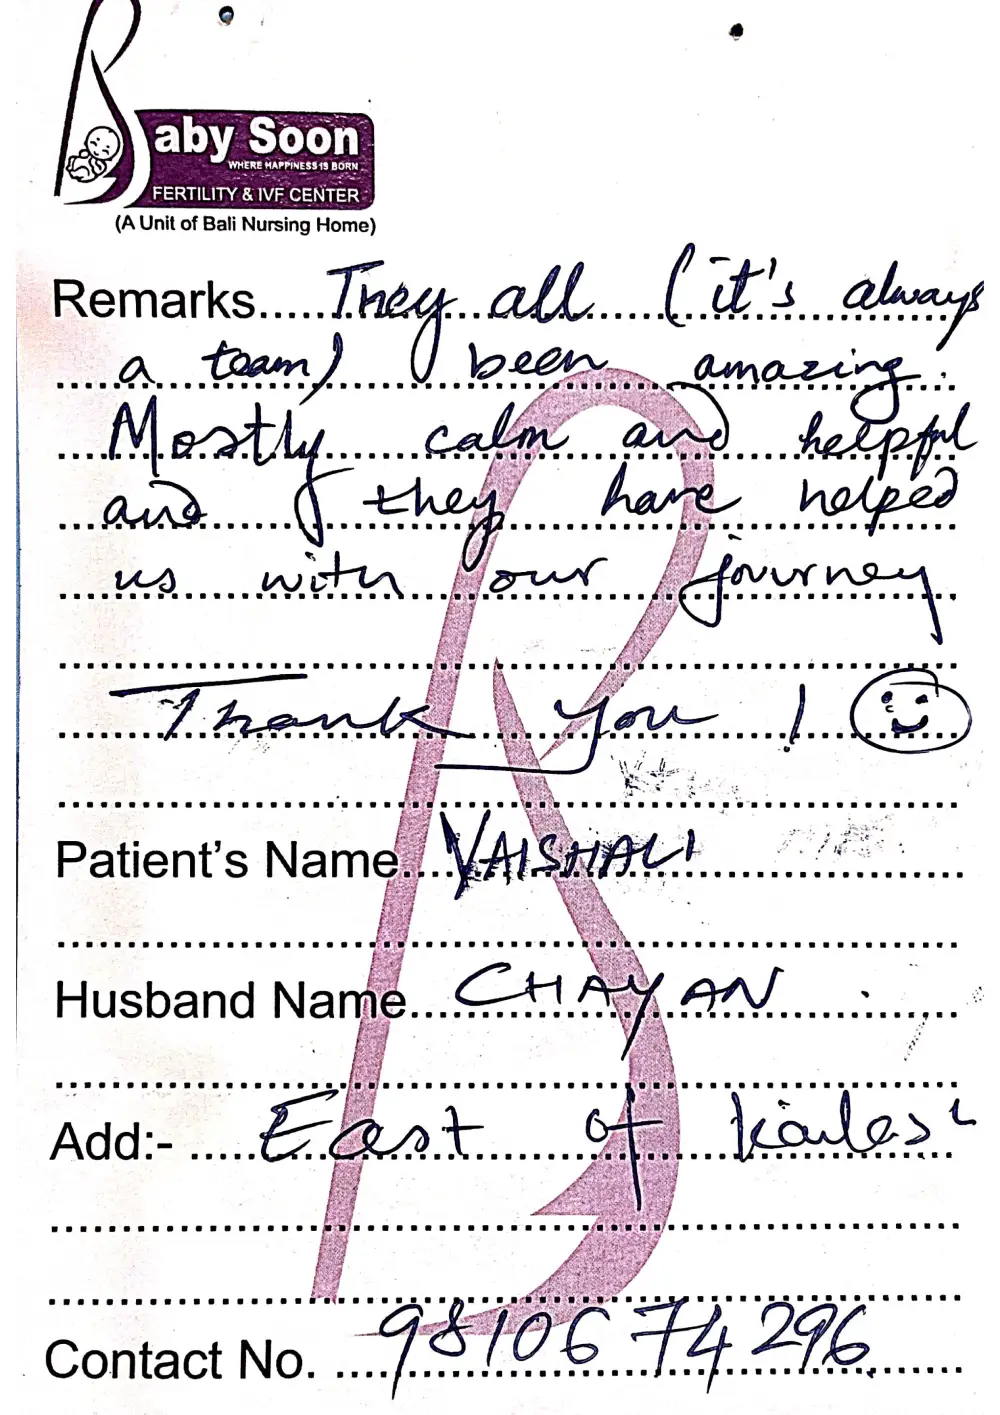 Baby Soon
WHERE HAPPINESS IS BORN
FERTILITY & IVF CENTER
(A Unit of Bali Nursing Home)
Remarks..... They all (it's always
a team) been amazing.
Mostly calm and helpful
and they have helped
us with our journey
Thank you !
Patient's Name.... VAISHALI
Husband Name... CHAYAN
Add:- ..... East of Kailash
Contact No. .... 9810674296